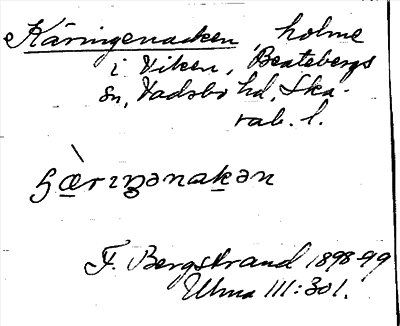 Käringenacken, holme
i Viken, Beatebergs
sn, Vadsbo hd, Ska-
rab. l.
ɧæ̀rɪŋənakən
F. Bergstrand 1898-99
Ulma 111:301.